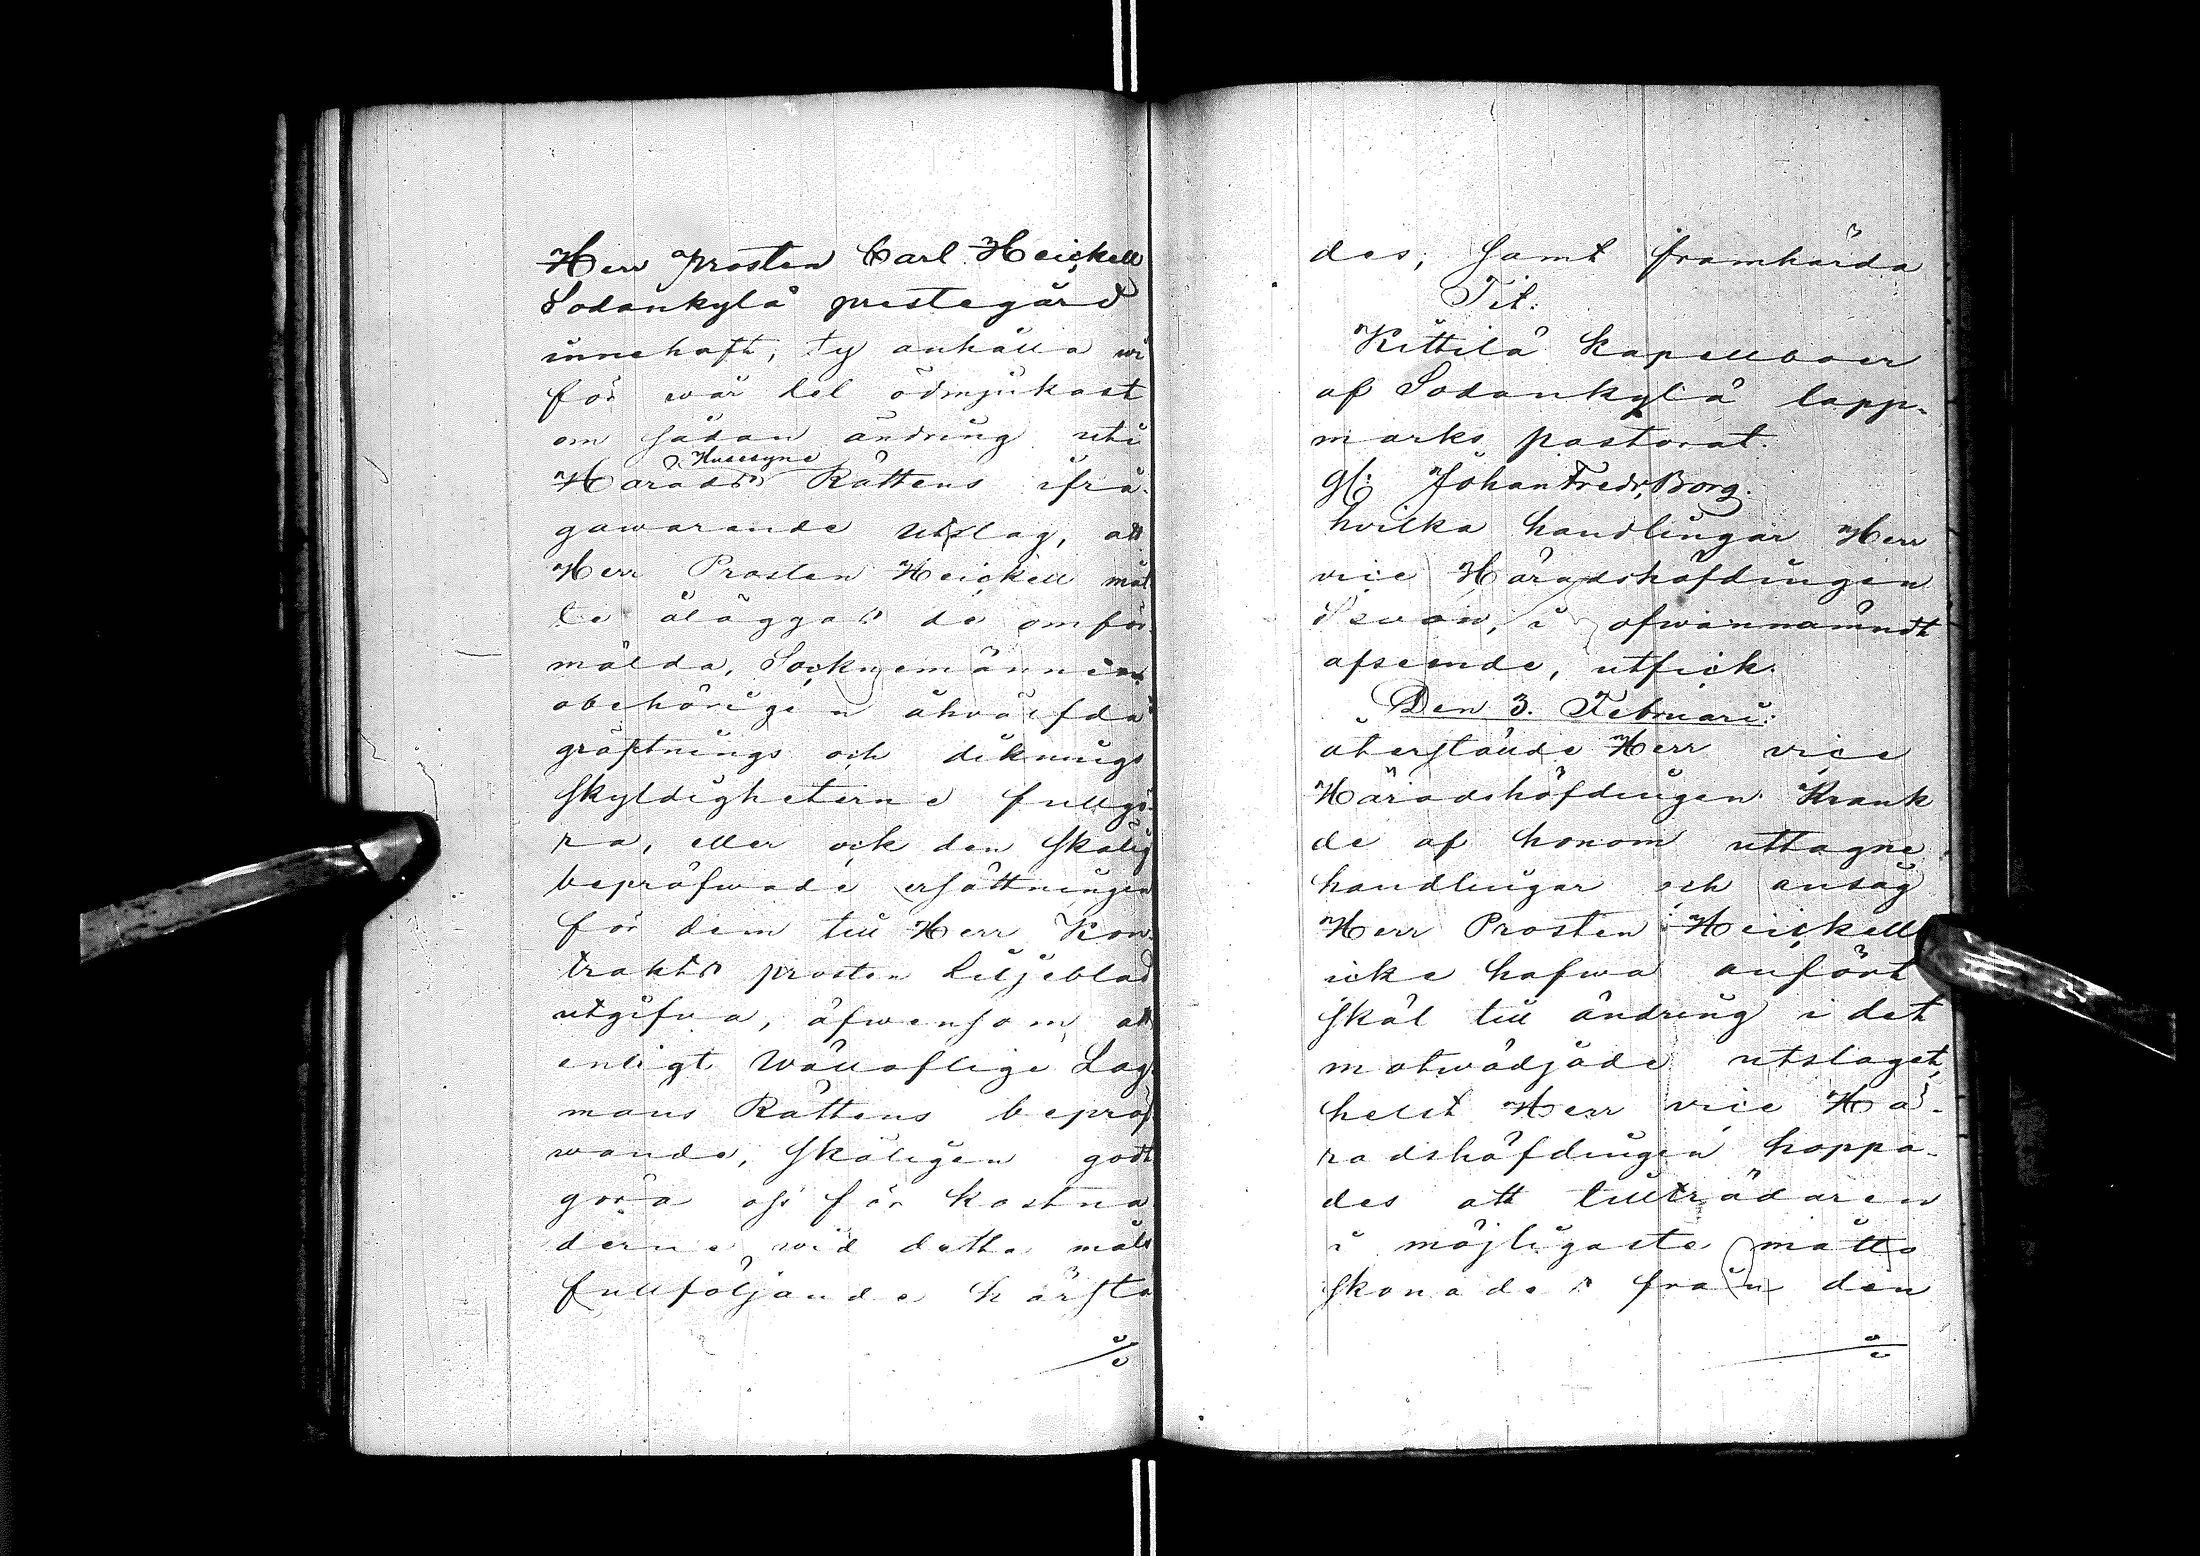 Herr Prosten Carl Heickell
Sodankylä prestegård
innehaft, ty anhålla wi
för wår del ödmjukast
om sådan ändring uti
Husesyns
Härads Rättens ifrå-
gawarande utslag, att
Herr Prosten Heickell måt
te åläggas de omför-
mälda, Socknemännen
obehörigen åhwälfda
gräftnings och diknings
skyldigheterne fullgö-
ra, eller ock den skälig
bepröfwade ersättningen
för dem till Herr Kon-
trakts prosten Liljeblad
utgifva, äfwensom att
enligt Wällofliga Lag-
mans Rättens bepröf
wande, skäligen godt
göra oss för kostna
derne wid detta måls
fullföljande härsta
des, samt framhärda
Tit.
Kittilä kapellboer
af Sodankylä lapp-
marks pastorat.
gm Johan Fredr. Borg.
hvilka handlingar Herr
vice Häradshöfdingen
Svan, i ofwannämndt
afseende, utfick.
Den 3. Februari.
återstälde Herr vice
Häradshöfdingen Krank
de af honom uttagne
handlingar och ansåg
Herr Prosten Heickell
icke hafwa anfört
skäl till ändring i det
motwädjade utslaget,
helst Herr vice Hä-
radshöfdingen hoppa-
des att tillträdaren
i möjligaste måtto
skonades från den